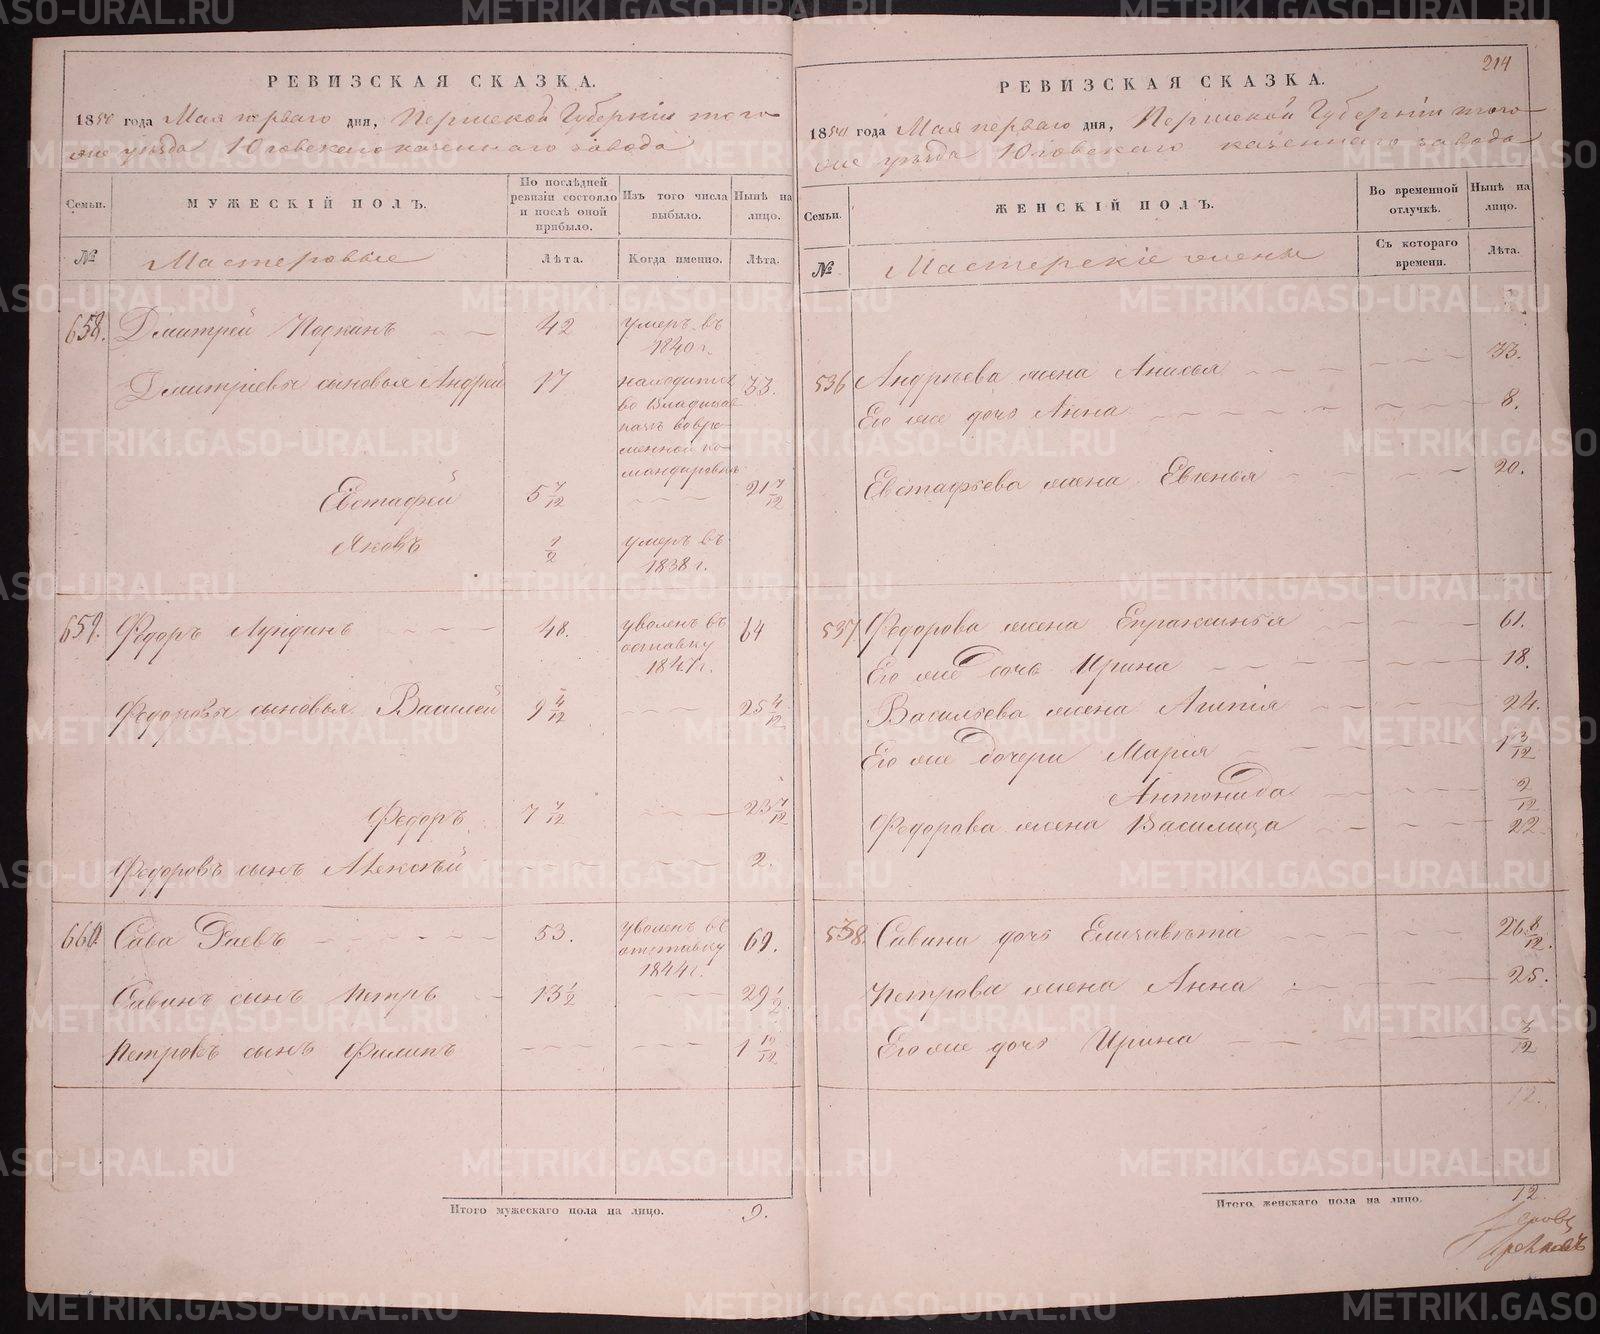 РЕВИЗСКАЯ СКАЗКА.
1850 года Мая перваго дня, Пермской Губернiи того
же уѣзда Юговскаго казеннаго завода
Семьи.
МУЖЕСКIЙ ПОЛЪ.
По послѣдней ревизiи состояло и послѣ оной прибыло.
Изъ того числа выбыло.
Нынѣ на лицо.
№
Мастеровые
Лѣта.
Когда именно.
Лѣта.
658. Дмитрей — — 42 умеръ въ
1840 г.
Дмитрiевы сыновья Андрей 17 находится 33.
во
вовре-
менной ко-
мандировкѣ
Евстафей 5 7/12 — — — 21 7/12
Яковъ 1/2 умеръ въ
1838 г.
659. Федоръ Лундинъ — — — 48. уволенъ въ 64
отставку
1847 г.
Федоровы сыновья Василей 9 4/12 — — 25 4/12
Федоръ 7 7/12 — — — 23 7/12
Федоровъ сынъ Алексѣй — — — — — 2.
660. Сава Гаевъ — — — — 53. уволенъ въ 69.
отставку
1844 г.
Савинъ сынъ Петръ — 13 1/2 — — — 29 1/2
Петровъ сынъ Филипъ — — — — — 1
Итого мужескаго пола на лицо. 9.
214
РЕВИЗСКАЯ СКАЗКА.
1850 года Мая перваго дня, Пермской Губернiи того
же уѣзда Юговскаго казеннаго завода
Семьи.
ЖЕНСКIЙ ПОЛЪ.
Во временной отлучкѣ.
Нынѣ на лицо.
№
Мастерскiе жены
Съ котораго времени.
Лѣта.
536 Андрѣева жена Анисья — — — — 33.
Его же дочь Анна — — — — 8.
Евстафьева жена Евгенья — — — — 20.
537 Федорова жена Епраксинья — — — 61.
Его же дочь Ирина — — — — 18.
Васильева жена Агипiя — — — — 24.
Его же дочери Марiя — — — — 1 3/12
Антонида — — — — 2/12
Федорова жена Василиса — — — — 22
538. Савина дочь Елизавѣта — — — 26 8/12.
Петрова жена Анна — — — — 25.
Его же дочь Ирина — — — — 3/12
12.
Итого женскаго пола на лицо. 12.
METRIKI.GASO-URAL.RU